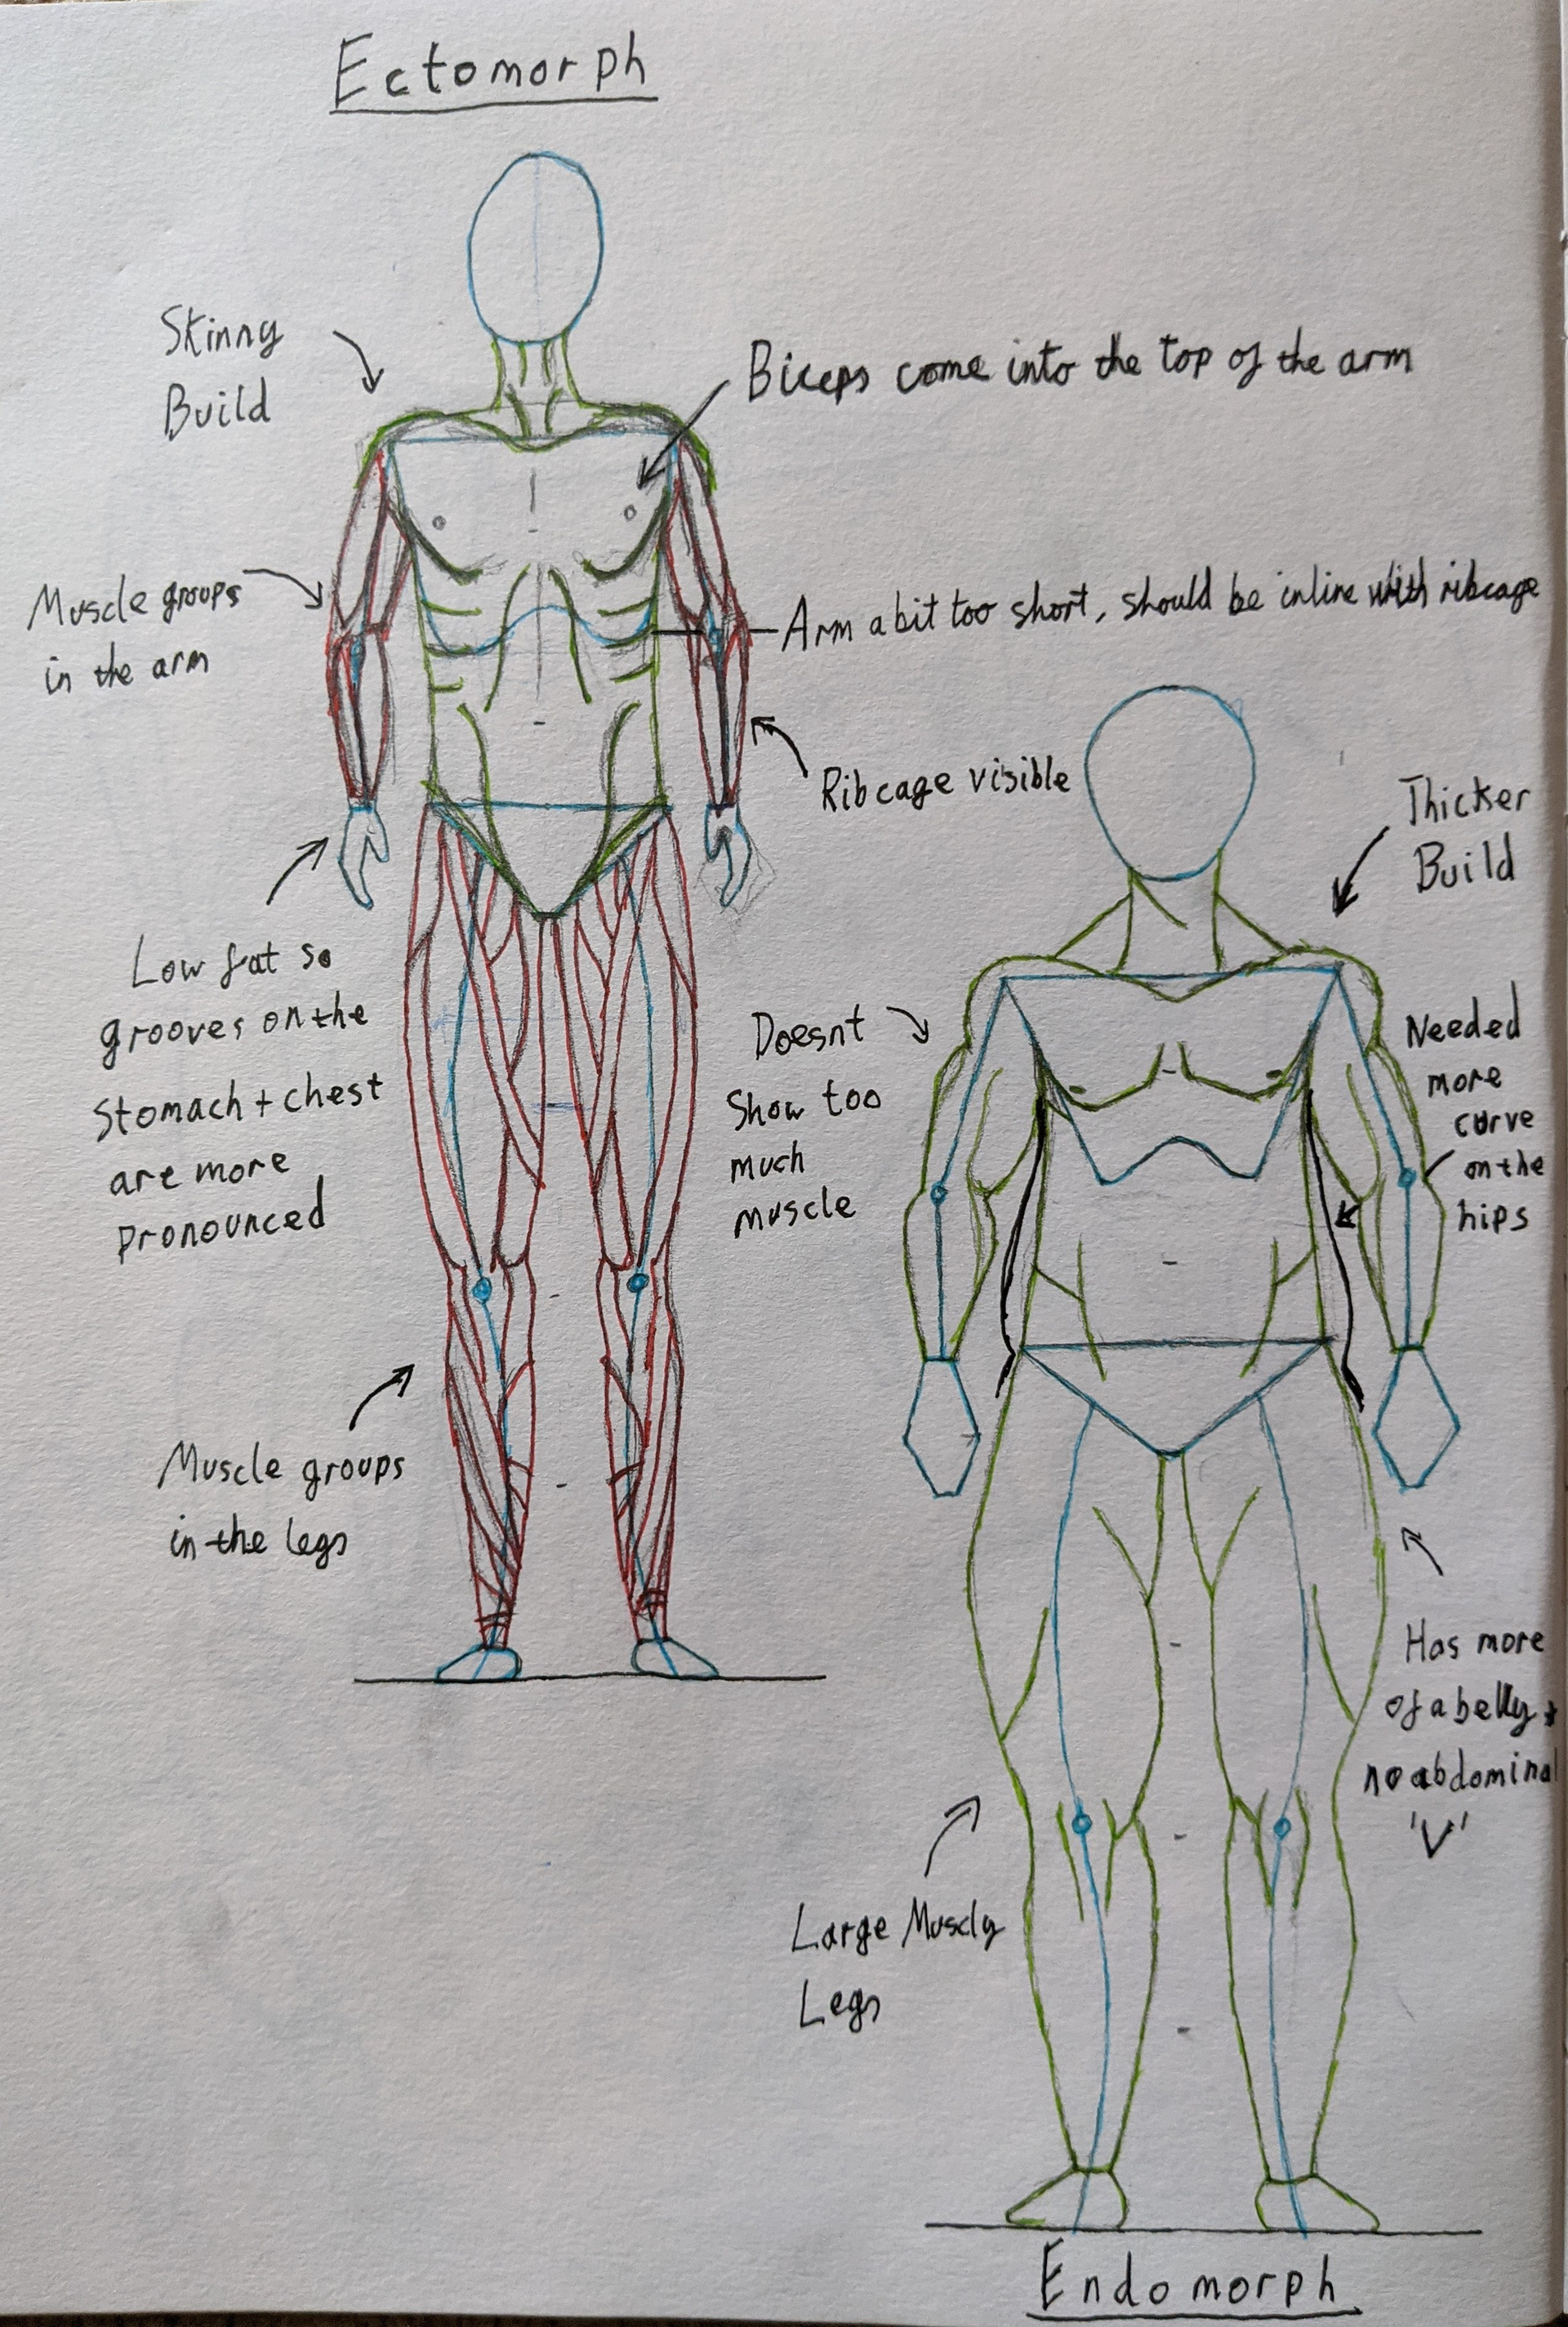 Ectomorph
Skinny
Build
Biceps come into the top of the arm
Muscle groups
in the arm
Arm a bit too short, should be inline with ribcage
Ribcage visible
Low fat so
grooves on the
Stomach + chest
are more
pronounced
Muscle groups
in the legs
Thicker
Build
Doesnt
Show too
much
muscle
Needed
more
curve
on the
hips
Has more
of a belly +
no abdominal
'V'
Large Muscly
Legs
Endomorph